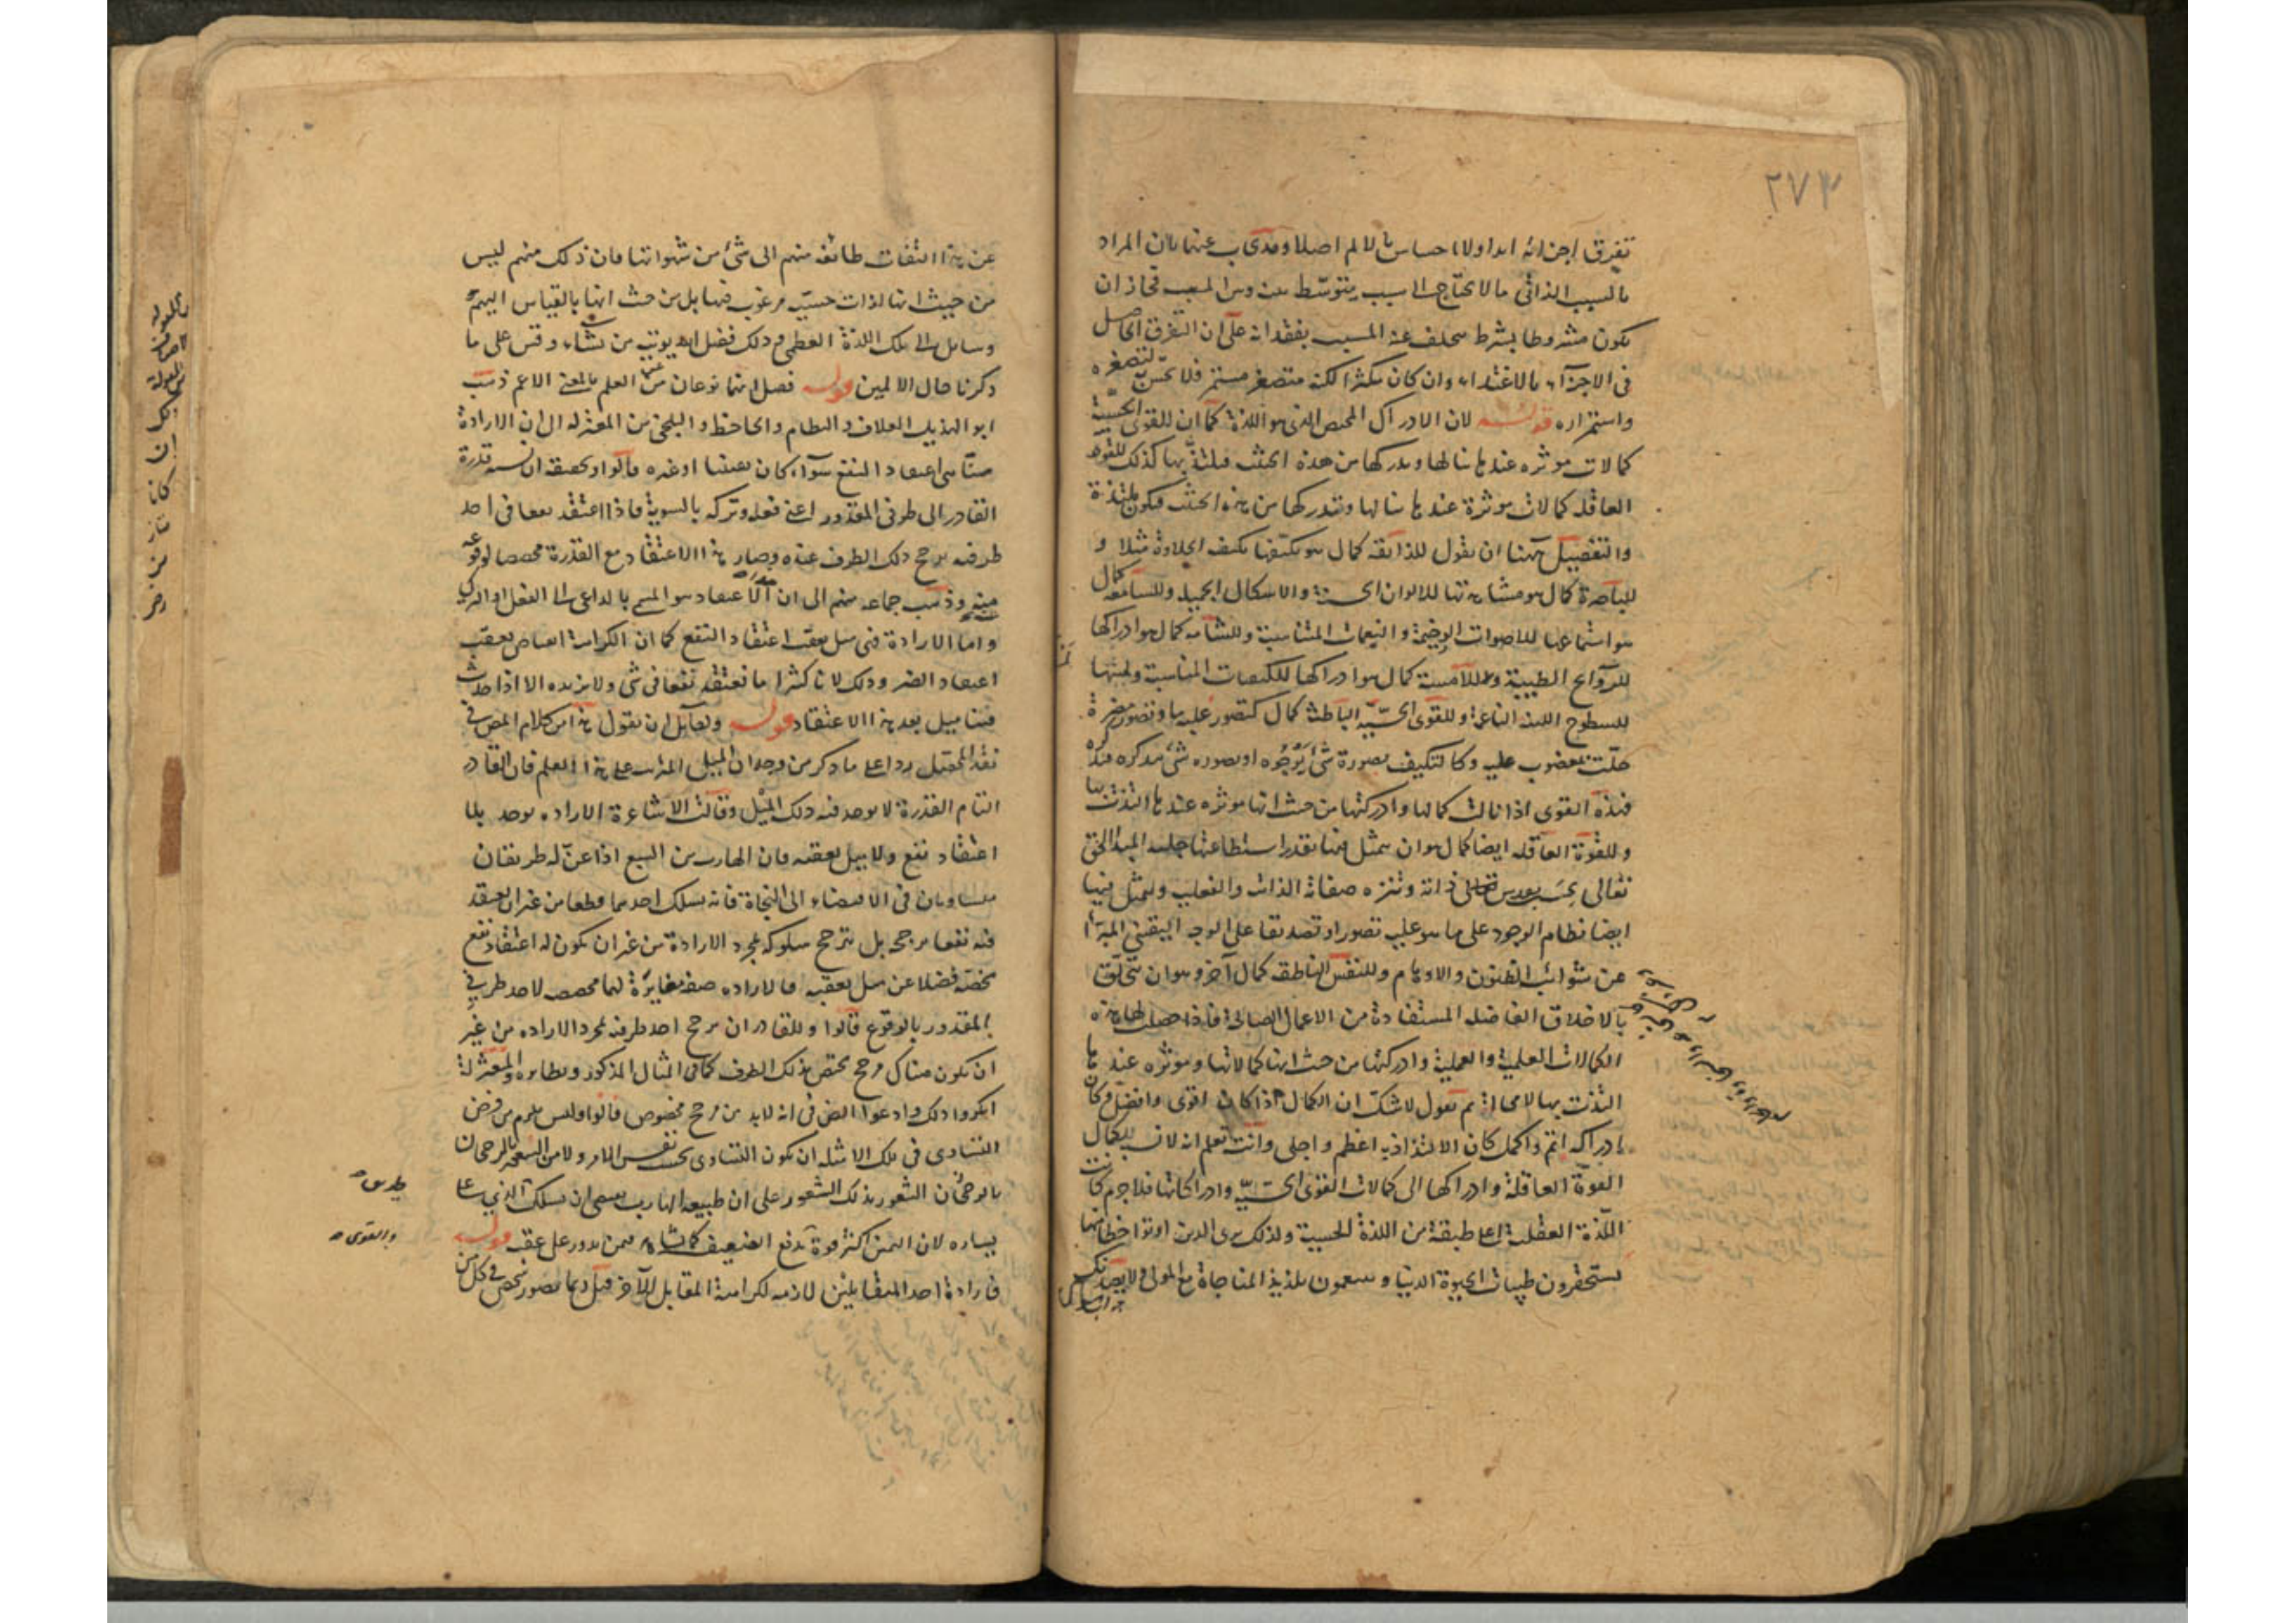 ٢٧٣
تفرق اجزائه ابدا ولا احساس بالالم اصلا وقد يجاب عنها بان المراد
بالسبب الذاتى ما لا يحتاج الى سبب يتوسط بينه وبين المسبب فجاز ان
يكون مشروطا بشرط يتخلف عنه المسبب بفقدانه على ان التفرق الحاصل
فى الاجزاء بالاغتذاء وان كان كثيرا لكنه متصغر مستمر فلا يحس به لتصغره
واستمراره قوله لان الادراك المحض الذى هو اللذة كما ان للقوى الحسية
كمالات موثره عندها تنالها وتدركها من هذه الحيثية فيلتذ بها كذلك للقوة
العاقلة كمالات موثرة عندها تنالها وتدركها من هذه الحيثية فيكون ملتذة
والتفصيل ههنا ان نقول للذائقة كمال هو تكيفها بكيفية الحلاوة مثلا و
للباصرة كمال هو مشاهدتها للالوان الحسنة والاشكال الجميلة وللسامعة كمال
هو استماعها للاصوات الرخيمة والنغمات المتناسبة وللشامة كمال هو ادراكها
للروايح الطيبة وللامسة كمال هو ادراكها للكيفيات المناسبة ولمسها
للسطوح اللينة الناعمة وللقوى الحسية الباطنة كمال كتصور غلبة ما وتصور مضرة
حلت بمغضوب عليه وكالتكيف بصورة شئ يرجوه او بصورة شئ يتذكره
فهذه القوى اذا نالت كمالها وادركتها من حيث انها موثره عندها التذت بها
وللقوة العاقلة ايضا كمال هو ان يتمثل فيها بقدر استطاعتها جلية المبدأ الحق
تعالى بحسب تقدس ذاته وتنزه صفاته الذات والفعلية وليتمثل فيها
ايضا نظام الوجود على ما هو عليه تصورا وتصديقا على الوجه اليقينى المبرأ
عن شوائب الظنون والاوهام وللنفس الناطقة كمال آخر وهو ان تتخلق
بالاخلاق الفاضلة المستفادة من الاعمال الصالحة فاذا حصلت لها هذه
الكمالات العلمية والعملية وادركتها من حيث انها كمالاتها وموثره عندها
التذت بها لا محالة ثم نقول لا شك ان الكمال اذا كان اقوى وافضل وكان
ادراكه اتم واكمل كان الالتذاذ به اعظم واجلى وانت تعلم انه لا نسبة لكمال
القوة العاقلة وادراكها الى كمالات القوى الحسية وادراكاتها فلا جرم كانت
اللذة العقلية اعلى طبقة من اللذة الحسية ولذلك يرى الذين اوتوا حظا منها
يستحقرون طيبات الحيوة الدنيا وينعمون بلذيذ المناجاة مع المولى ولا يصدنك
عن هذا التفات طائفة منهم الى شئ من شهواتها فان ذلك منهم ليس
من حيث انها لذات حسية مرغوب فيها بل من حيث انها بالقياس اليهم
وسايل الى تلك اللذة العظمى وذلك فضل الله يوتيه من يشاء وقس على ما
ذكرنا حال الالمين قوله فصل انهما نوعان من العلم بالمعنى الاعم ذهب
ابو الهذيل العلاف والنظام والجاحظ والبلخى من المعتزلة الى ان الارادة
منا هى اعتقاد النفع سواء كان يقينيا او غيره قالوا وتحقيقه ان نسبة قدرة
القادر الى طرفى المقدور اعنى فعله وتركه بالسوية فاذا اعتقد نفعا فى احد
طرفيه ترجح ذلك الطرف عنده وصار هذا الاعتقاد مع القدرة مخصصا لوقوعه
منه وذهب جماعة منهم الى ان الاعتقاد هو المسمى بالداعى الى الفعل او الترك
واما الارادة فهى ميل يعقب اعتقاد النفع كما ان الكراهة انقباض يعقب
اعتقاد الضر وذلك لانا كثيرا ما نعتقد نفعا فى شئ ولا نريده الا اذا حدث
فينا ميل بعد هذا الاعتقاد قوله ولقائل ان يقول هذا من كلام المص فى
نقد المحصل ردا على ما ذكر من وجدان الميل المترتب على هذا العلم فان القادر
التام القدرة لا يوجد فيه ذلك الميل وقالت الاشاعرة الارادة توجد بلا
اعتقاد نفع ولا ميل يعقبه فان الهارب من السبع اذا عن له طريقان
متساويان فى الافضاء الى النجاة فانه يسلك احدهما قطعا من غير ان يعتقد
فيه نفعا مرجحا بل يترجح سلوكه بمجرد الارادة من غير ان يكون له اعتقاد نفع
يخصه فضلا عن ميل يعقبه فالارادة صفة مغايرة لهما مخصصة لاحد طرفى
المقدور بالوقوع قالوا وللقادر ان يرجح احد طرفيه بمجرد الارادة من غير
ان يكون هناك مرجح يختص بذلك الطرف كما فى المثال المذكور ونظايره والمعتزلة
انكروا ذلك وادعوا الضرورة فى انه لابد من مرجح مخصوص قالوا وليس يلزم من فرض
التساوى فى تلك الامثلة ان يكون التساوى بحسب نفس الامر ولا من الشعور بالرجحان
بالرجحان الشعور بذلك الشعور على ان طبيعة الهارب تقتضى ان يسلك الذى على
يساره لان اليمين اكثر قوة تدفع الضعيف كما نشاهد فيمن يدور على عقبه قوله
فارادة احد المتقابلين لازمة لكراهة المقابل الآخر
والقوى